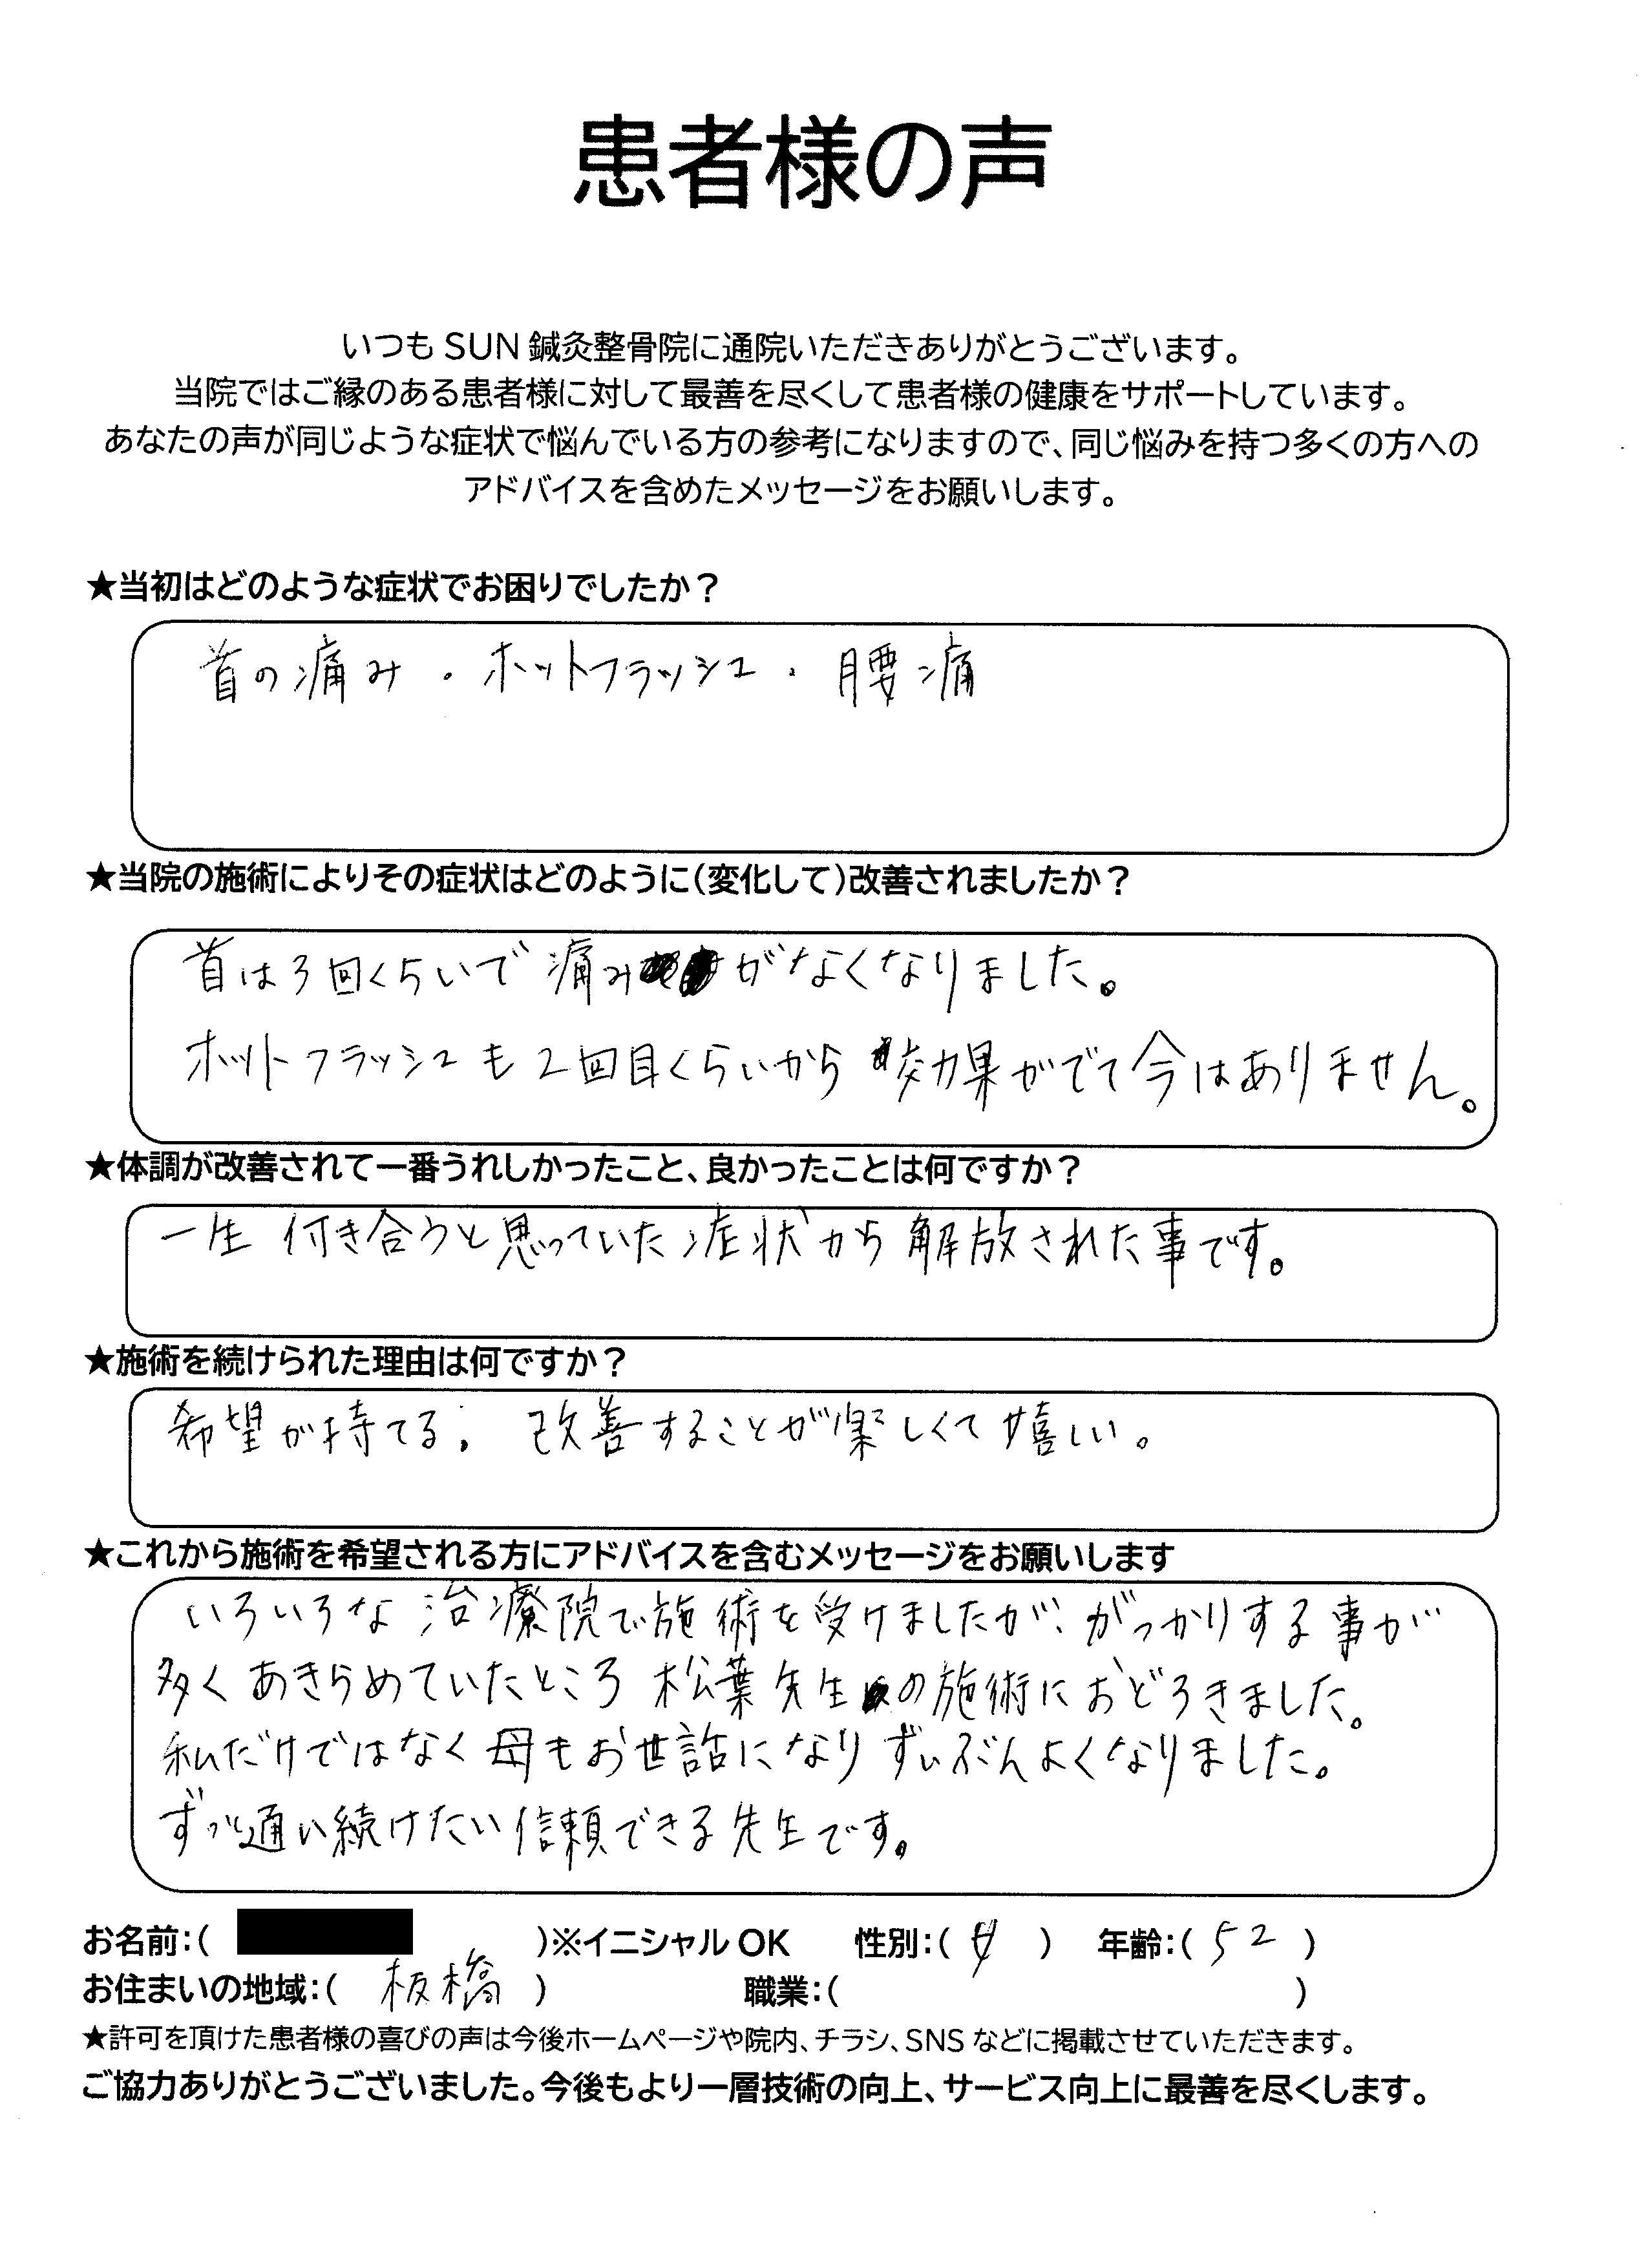 患者様の声
いつも SUN 鍼灸整骨院に通院いただきありがとうございます。
当院ではご縁のある患者様に対して最善を尽くして患者様の健康をサポートしています。
あなたの声が同じような症状で悩んでいる方の参考になりますので、同じ悩みを持つ多くの方への
アドバイスを含めたメッセージをお願いします。
★当初はどのような症状でお困りでしたか？
首の痛み・ホットフラッシュ・腰痛
★当院の施術によりその症状はどのように(変化して)改善されましたか？
首は3回くらいで痛みがなくなりました。
ホットフラッシュも2回目くらいから効果がでて今はありません。
★体調が改善されて一番うれしかったこと、良かったことは何ですか？
一生付き合うと思っていた症状から解放された事です。
★施術を続けられた理由は何ですか？
希望が持てる。改善することが楽しくて嬉しい。
★これから施術を希望される方にアドバイスを含むメッセージをお願いします
いろいろな治療院で施術を受けましたが、がっかりする事が
多くあきらめていたところ松葉先生の施術におどろきました。
私だけではなく母もお世話になりずいぶんよくなりました。
ずっと通い続けたい信頼できる先生です。
お名前:( )※イニシャル OK 性別:( 女 ) 年齢:( 52 )
お住まいの地域:( 板橋 ) 職業:( )
★許可を頂けた患者様の喜びの声は今後ホームページや院内、チラシ、SNS などに掲載させていただきます。
ご協力ありがとうございました。今後もより一層技術の向上、サービス向上に最善を尽くします。